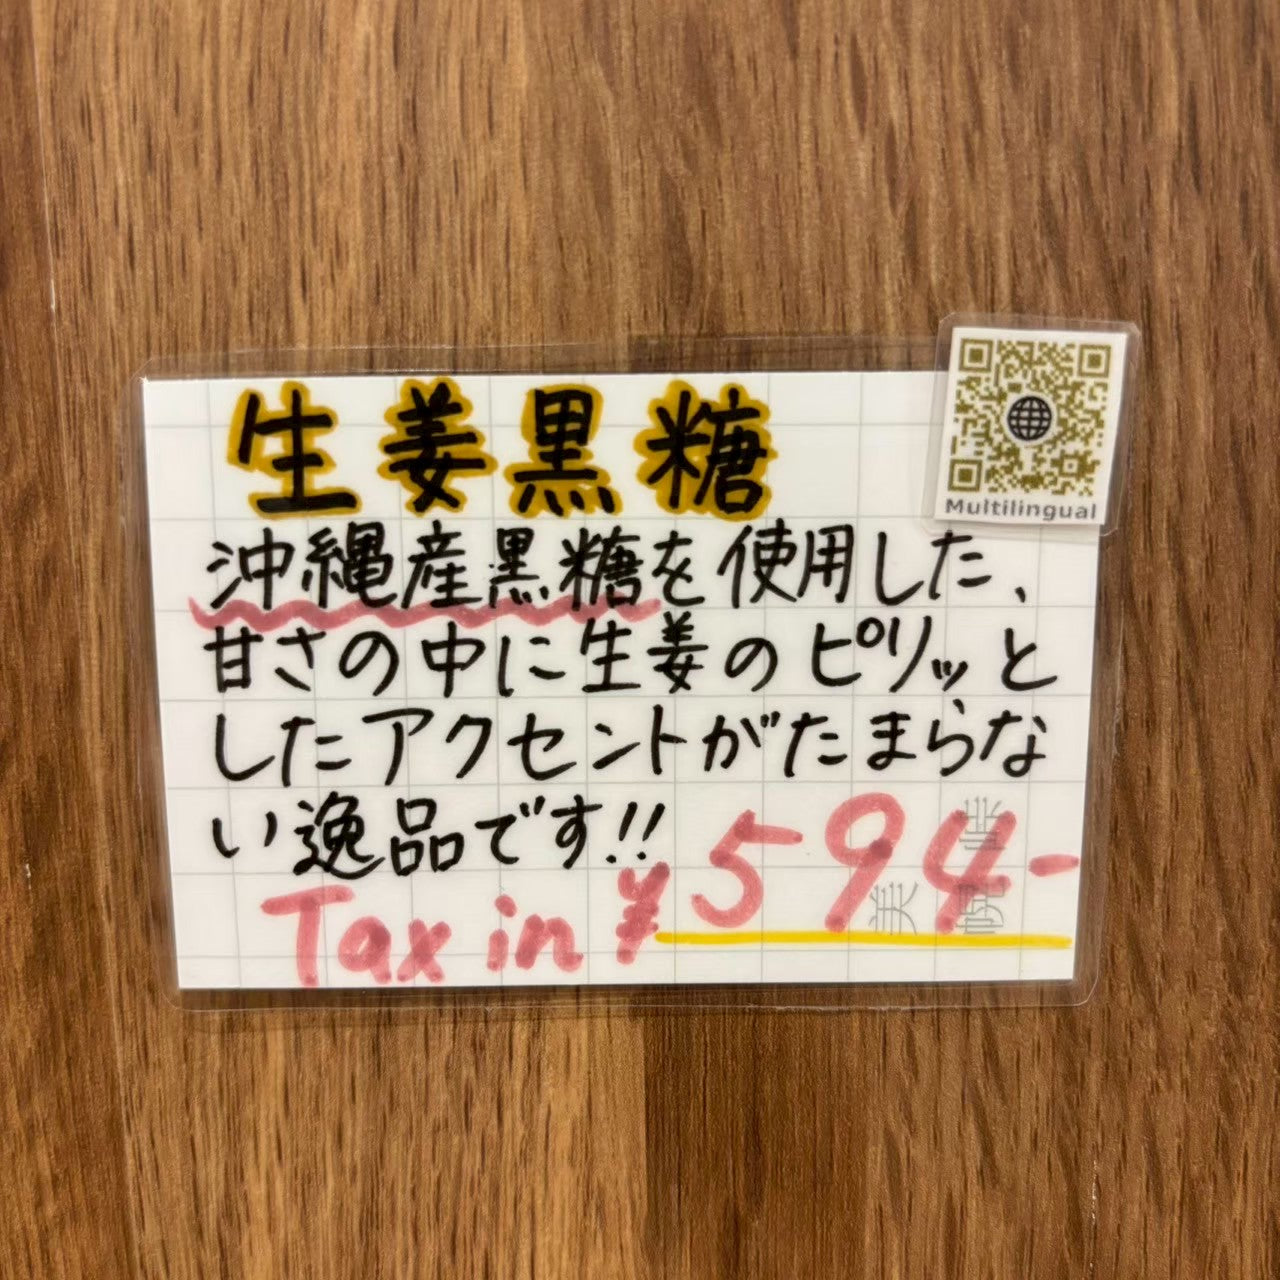 生姜黒糖
Multilingual
沖縄産黒糖を使用した、
甘さの中に生姜のピリッと
したアクセントがたまらな
い逸品です!!
Tax in ¥594-